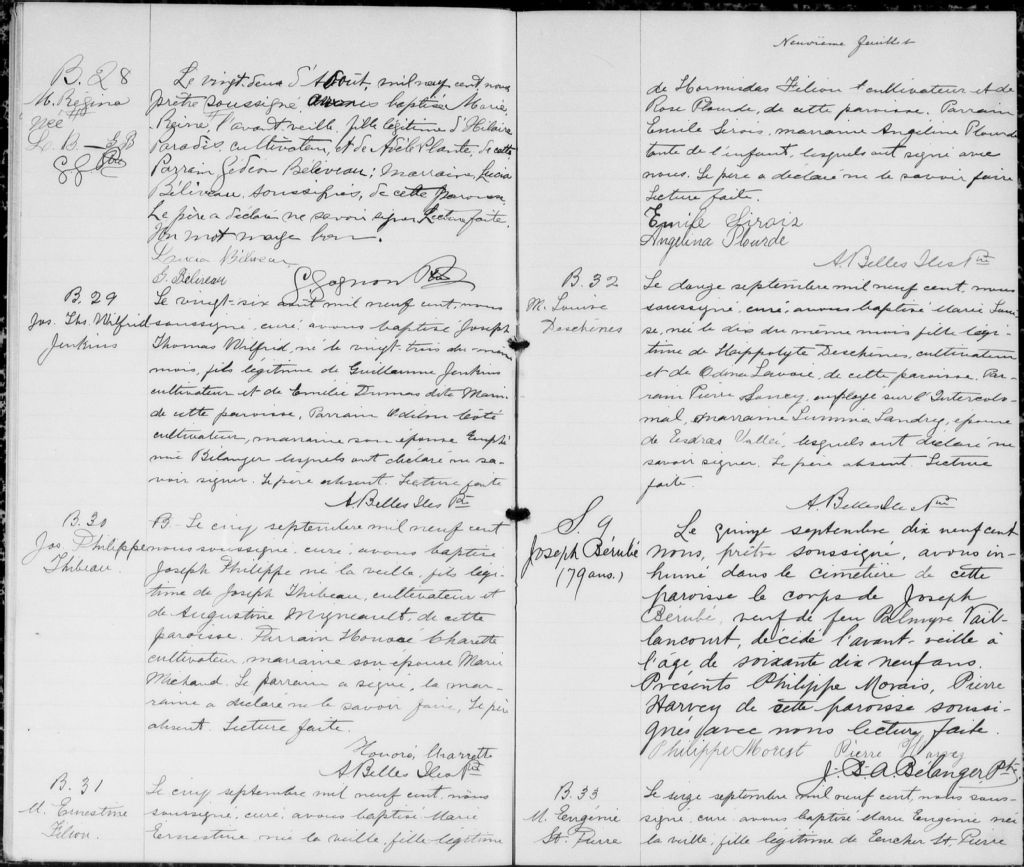 B. 28
M. Régina
née
Le vingt deux d'Août, mil neuf cent, nous
prêtre soussigné avons baptisé Marie
Reine, l'avant veille, fille légitime d'Hilaire
Paradis, cultivateur, et de Adèle Plante, de cette
Parrain Gédéon Béliveau; Marraine, Lucia
Béliveau, soussignés, de cette paroisse.
Le père a déclaré ne savoir signer Lecture faite.
Un mot nul bon.
Lucia Béliveau
G. Beliveau
Gagnon Ptre
B. 29
Jos. Ths Wilfrid
Jenkins
Le vingt-six août mil neuf cent, nous
soussigné, curé, avons baptisé Joseph
Thomas Wilfrid, né le vingt-trois du même
mois, fils légitime de Guillaume Jenkins
cultivateur et de Emilie Dumas dite Marin
de cette paroisse, Parrain Odilon Côté
cultivateur, marraine son épouse Euphé
mie Bélanger lesquels ont déclaré ne sa-
voir signer. Le père absent. Lecture faite
A. Belles Iles Ptr
B. 30
Jos. Philippe
Thibeau.
B- Le cinq septembre mil neuf cent
nous soussigné, curé, avons baptisé
Joseph Philippe né la veille, fils légi-
time de Joseph Thibeau, cultivateur et
de Augustine Migneault, de cette
paroisse. Parrain Honoré Charette
cultivateur, marraine son épouse Marie
Michaud. Le parrain a signé, la mar-
raine a déclaré ne le savoir faire, Le père
absent. Lecture faite.
Honoré Charrette
A Belles Iles Ptr
B. 31
M. Ernestine
Filion.
Le cinq septembre mil neuf cent, nous
soussigné, curé, avons baptisé Marie
Ernestine née la veille, fille légitime
Neuvième feuillet
de Hormidas Filion cultivateur et de
Rose Plourde, de cette paroisse. Parrain
Emile Sirois, marraine Angelina Plourde
tante de l'enfant, lesquels ont signé avec
nous. Le père a déclaré ne le savoir faire
Lecture faite.
Emile Sirois
Angelina Plourde
A. Belles Iles Ptr
B. 32
M. Louise
Deschênes
Le douze septembre mil neuf cent, nous
soussigné, curé, avons baptisé Marie Loui-
se, née le dix du même mois fille légi-
time de Hippolyte Deschênes, cultivateur
et de Odina Lavoie, de cette paroisse. Par-
rain Pierre employé sur l'Intercolo-
nial, marraine Lumina Landry, épouse
de Esdras Vallée, lesquels ont déclaré ne
savoir signer. Le père absent. Lecture
faite.
A. Belles Iles Ptr
S 9
Joseph Bérubé
(79 ans.)
Le quinze septembre dix neuf cent
nous, prêtre soussigné, avons in-
humé dans le cimetière de cette
paroisse le corps de Joseph
Bérubé, veuf de feu Palmyre Vail-
lancourt, décédé l'avant-veille à
l'âge de soixante dix neuf ans.
Présents Philippe Morais, Pierre
Harvey de cette paroisse soussi-
gnés avec nous lecture faite.
Philippe Morest Pierre Harvey
J. S. A. Bélanger Ptr.
B. 33
M. Eugénie
St. Pierre
Le seize septembre mil neuf cent, nous sous-
signé, curé, avons baptisé Marie Eugénie née
la veille, fille légitime de Eucher St. Pierre